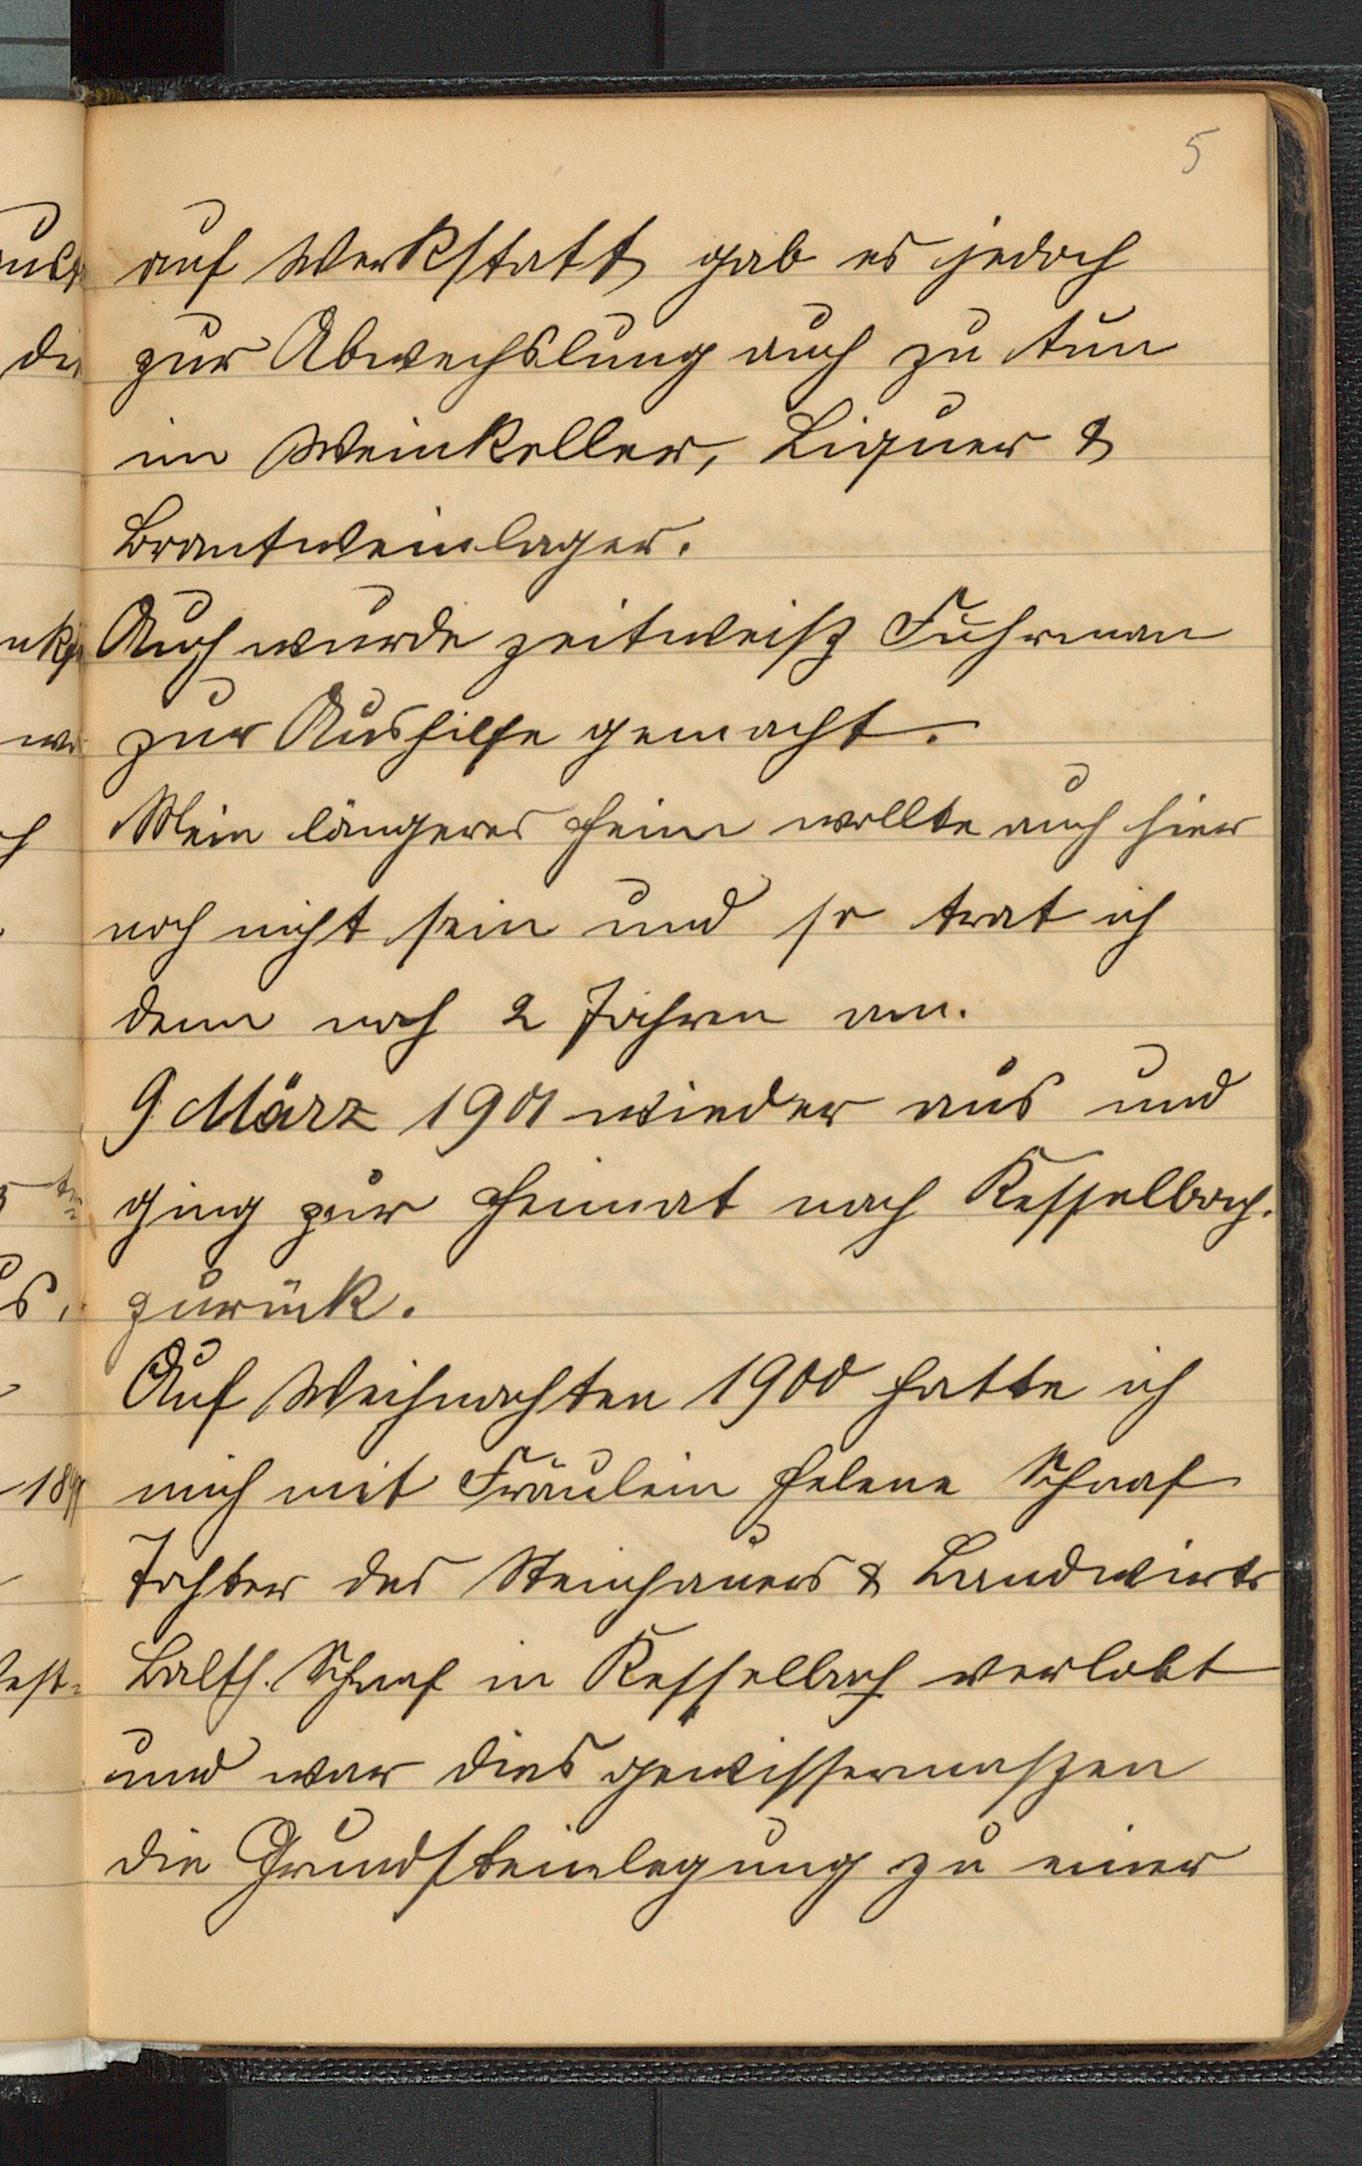 5
auf Werkstatt gab es jedoch
zur Abwechslung auch zu tun
im Weinkeller, Liquer &
Brantweinlager.
Auch wurde zeitweiß Fuhrman
zur Aushilfe gemacht.
Mein längeres Heim wollte auch hier
noch nicht sein und so trat ich
denn nach 2 Jahren am.
9 März 1901 wieder aus und
ging zur Heimat nach Kesselbach.
zurück.
Auf Weihnachten 1900 hatte ich
mich mit Fräulein Helene Schaaf
Tochter des Steinhauers & Landwirts
Balth. Schaaf in Kesselbach verlobt
und war dies gewissermaßen
die Grundsteinlegung zu einer